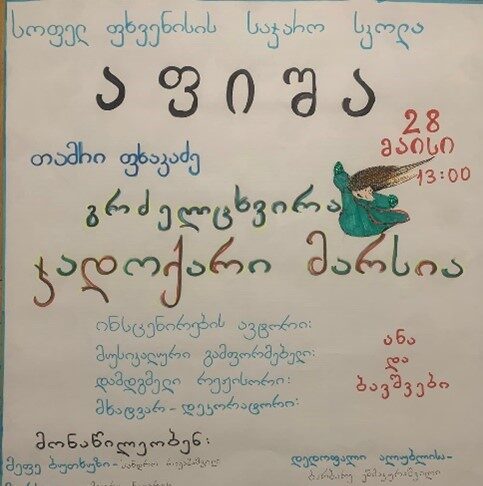 სოფელ ფხვენისის საჯარო სკოლა
აფიშა
28
მაისი
13:00
თამრი ფხაკაძე
გრძელცხვირა
ჯადოქარი მარსია
ინსცენირების ავტორი:
მუსიკალური გამფორმებელი:
დამდგმელი რეჟისორი:
მხატვარ-დეკორატორი:
ანა
და
ბავშვები
მონაწილეობენ:
მეფე ბუთხუზი- სანდრო
დედოფალი ალუბლისა-
ბარბარე